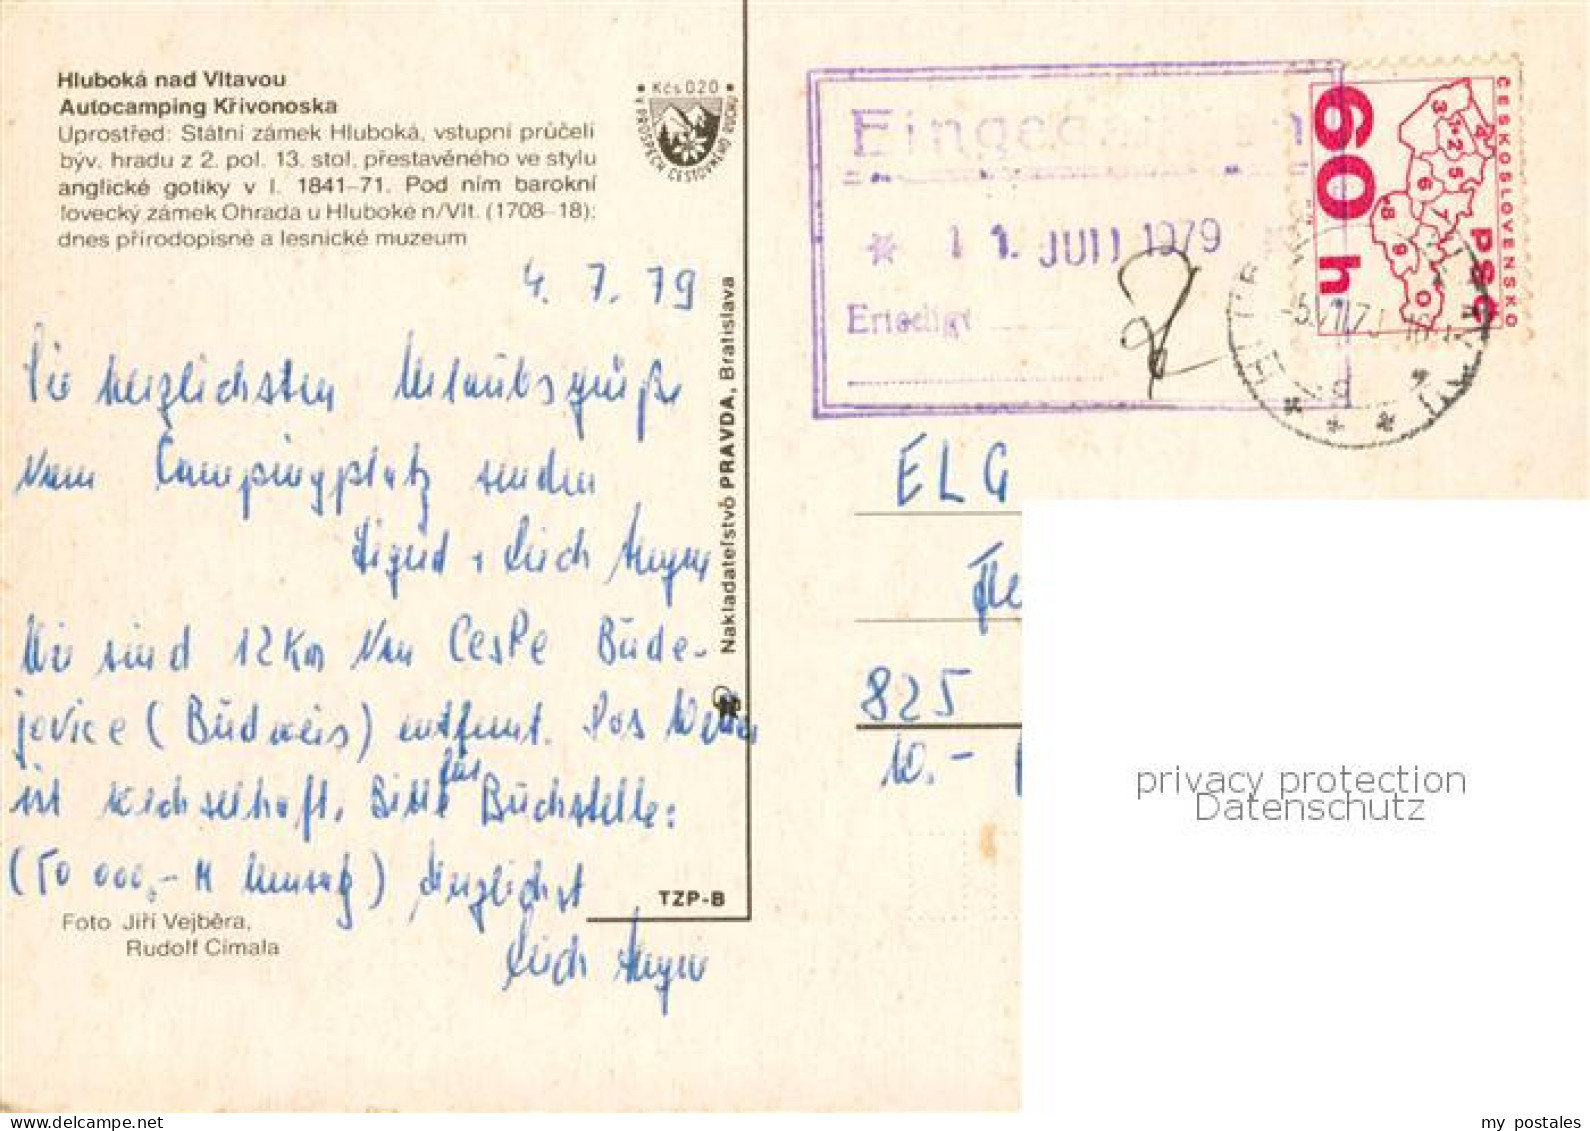 Hluboká nad Vltavou
Autocamping Křivonoska
Uprostřed: Státní zámek Hluboká, vstupní průčelí
býv. hradu z 2. pol. 13. stol. přestavěného ve stylu
anglické gotiky v l. 1841-71. Pod ním barokní
lovecký zámek Ohrada u Hluboké n/Vlt. (1708-18);
dnes přírodopisné a lesnické muzeum
Kčs 0,20
V PROSPĚCH CESTOVNÉHO RUCHU
4. 7. 79
Die herzlichsten Urlaubsgrüße
vom Campingplatz senden
Wir sind 12 km von Česke Büde-
jovice (Budweis) entfernt. Das Wetter
ist wechselhaft. Bitte für Buchstelle:
(50 000,- M Umsatz) Herzlichst
Foto Jiří Vejběra,
Rudolf Cimala
TZP-B
Nakladateľstvo PRAVDA, Bratislava
Eingegangen
* 11. JULI 1979
Erledigt
ČESKOSLOVENSKO
60 h
PSČ
3 1 2 4 5 6 7 8 9 0
ELG
825
10.-
privacy protection
Datenschutz
my postales